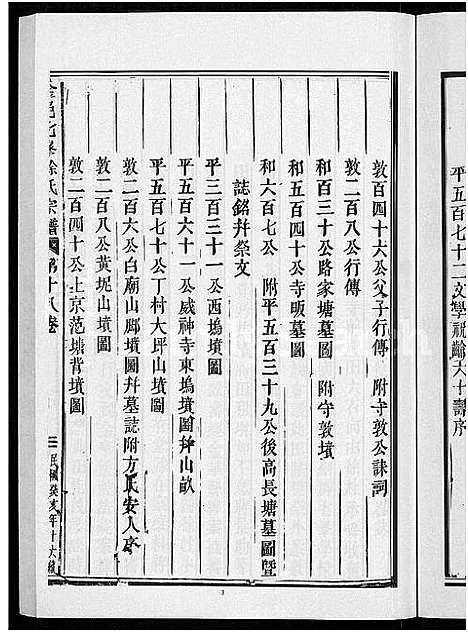 平五百七十二文學祝齡六十壽序
敦百四十六公父子行傳 附守敦公誄詞
敦二百八公行傳
和百三十公路家塘墓圖 附守敦墳
和五百四十公寺畈墓圖
和六百七公 附平五百三十九公後高長塘墓圖暨
誌銘幷祭文
平三百三十一公西塢墳圖
平五百六十一公威神寺東塢墳圖幷山畝
平五百七十公丁村大坪山墳圖
敦二百六公白廟山郎墳圖幷墓誌附方氏安人序
敦二百八公黃坭山墳圖
敦二百四十公上京范塘背墳圖
徐氏宗譜 第十八卷
民國癸亥年十六編